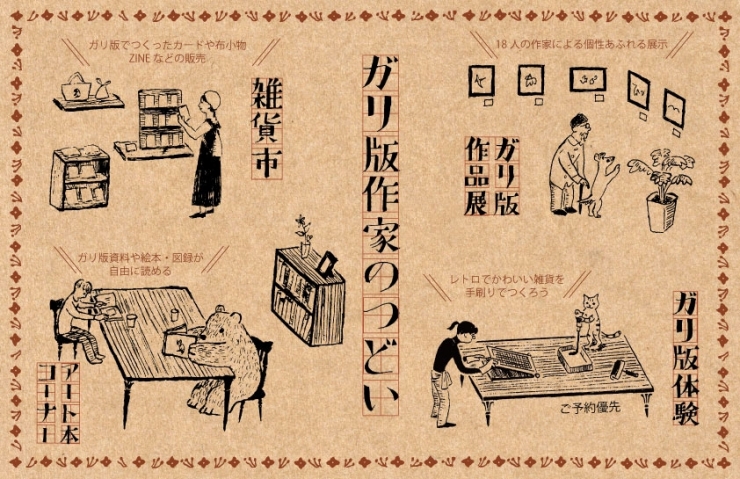 ガリ版作家のつどい
18人の作家による個性あふれる展示
ガリ版
作品展
ガリ版でつくったカードや布小物
ZINEなどの販売
雑貨市
レトロでかわいい雑貨を
手刷りでつくろう
ガリ版体験
ご予約優先
ガリ版資料や絵本・図録が
自由に読める
アート本
コーナー